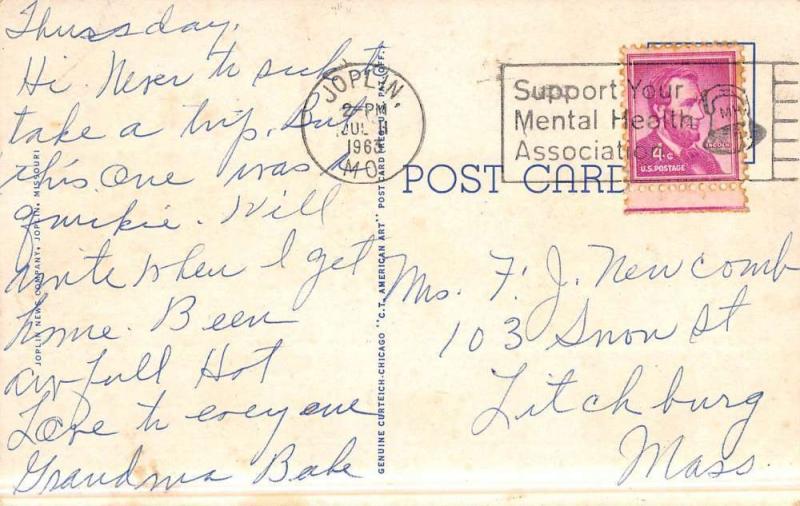 Thursday,
Hi. Never to
take a trip. But
this one was a
quickie. Will
write when I get
home. Been
awfull Hot
Love to everyone
Grandma Babe
JOPLIN NEWS COMPANY, JOPLIN, MISSOURI
GENUINE CURTEICH-CHICAGO "C.T. AMERICAN ART" POST CARD (REG. U.S. PAT. OFF.)
JOPLIN,
2-PM
JUL 11
1963
MO.
Support Your
Mental Health
Association
MH
LINCOLN
4¢
U.S. POSTAGE
POST CARD
Mrs. F. J. Newcomb
103 Snow St
Fitchburg
Mass.